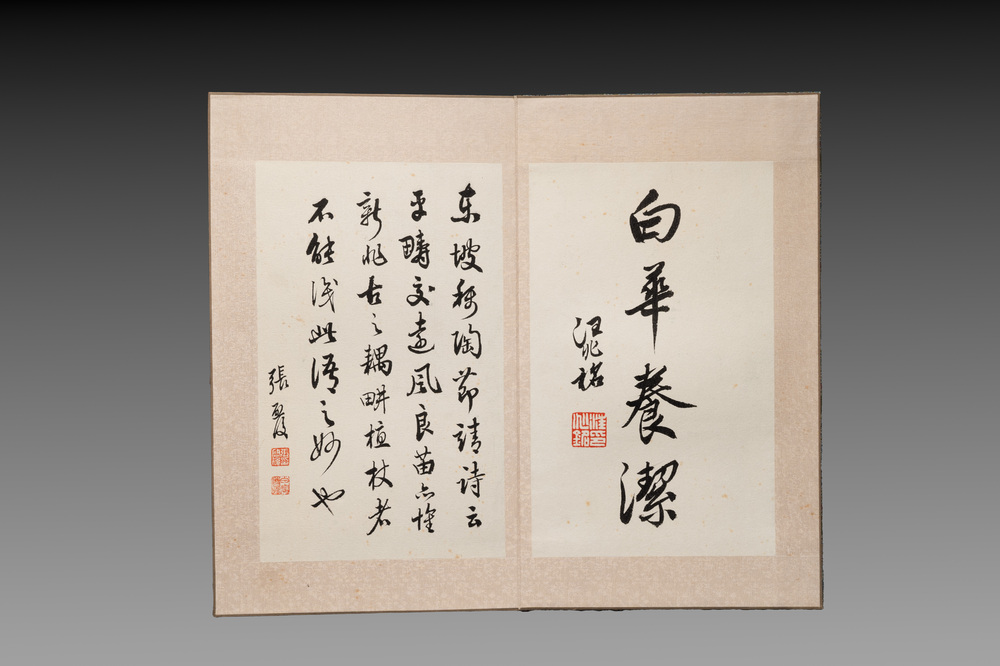 白華養潔
汪兆銘
東坡稱陶節靖詩云
平疇交遠風良苗亦懷
新非古之耦畊植杖者
不能識此語之妙也
張